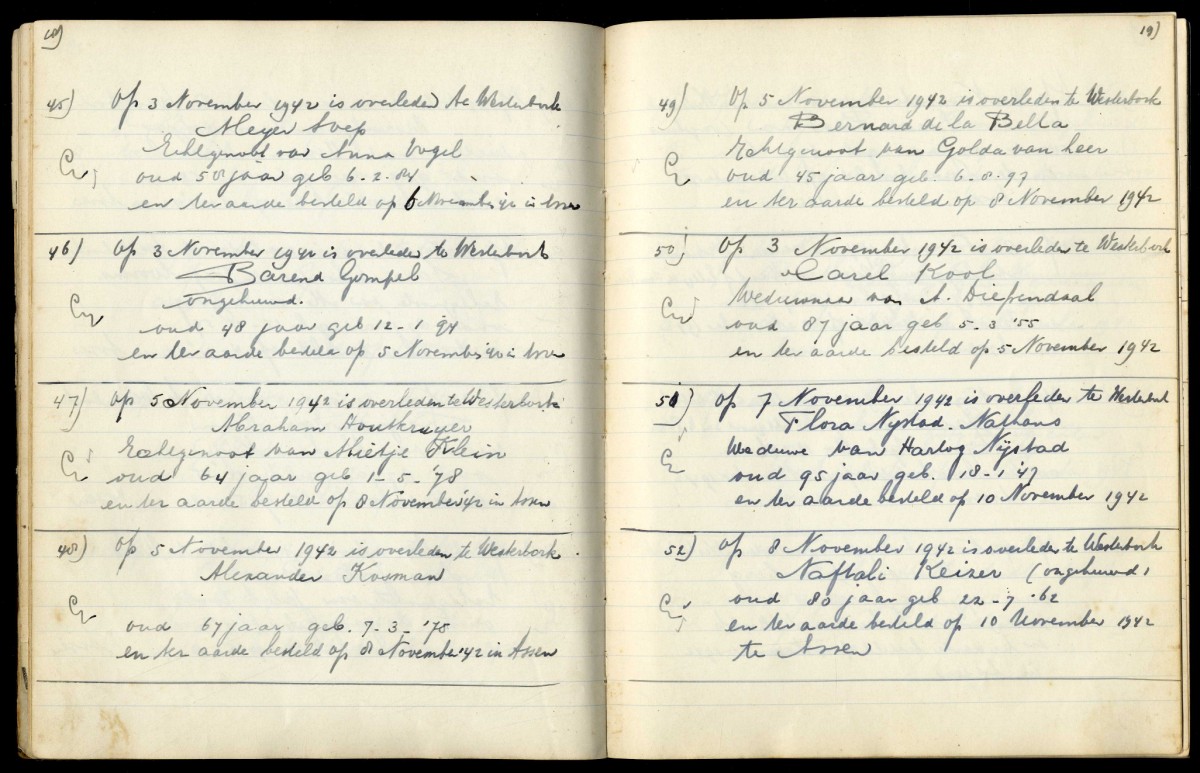 18)
45) Op 3 November 1942 is overleden te Westerbork
Meyer Svep
Echtgenoot van Anna Vogel
oud 58 jaar geb 6-2-84
en ter aarde besteld op 6 November in
46) Op 3 November 1942 is overleden te Westerbork
Barend Gompel
ongehuwd.
oud 48 jaar geb 12-1 '94
en ter aarde besteld op 5 November in
47) Op 5 November 1942 is overleden te Westerbork
Abraham Houtkruyer
Echtgenoot van Mietje Klein
oud 64 jaar geb 1-5-'78
en ter aarde besteld op 8 November '42 in Assen
48) Op 5 November 1942 is overleden te Westerbork
Alexander Kosman
oud 67 jaar geb. 7-3-'75
en ter aarde besteld op 8 November '42 in Assen
19)
49) Op 5 November 1942 is overleden te Westerbork
Bernard de la Bella
Echtgenoot van Golda van Leer
oud 45 jaar geb. 6-8-97
en ter aarde besteld op 8 November 1942
50) Op 3 November 1942 is overleden te Westerbork
Carel Kool
Weduwnaar van A. Diefendaal
oud 87 jaar geb 5-3 '55
en ter aarde besteld op 5 November 1942
51) Op 7 November 1942 is overleden te Westerbork
Flora Nystad. Nathans
Weduwe van Hartog Nijstad
oud 95 jaar geb. 18-1 '47
en ter aarde besteld op 10 November 1942
52) Op 8 November 1942 is overleden te Westerbork
Naftali Keizer (ongehuwd)
oud 80 jaar geb 22-7-'62
en ter aarde besteld op 10 November 1942
te Assen